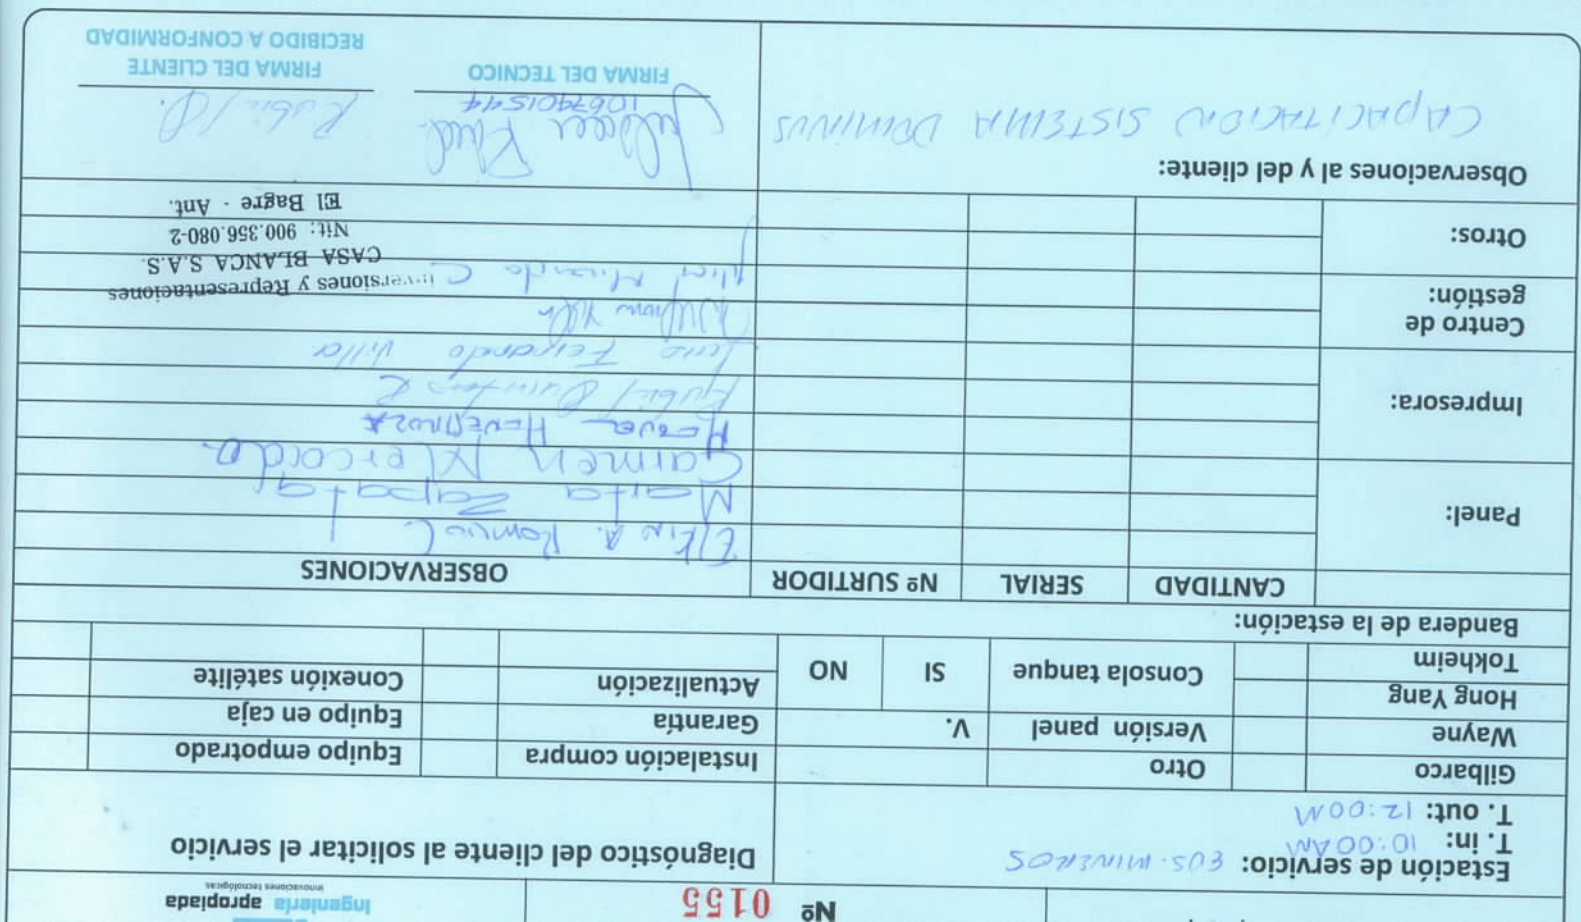 Nº 0155
Ingeniería apropiada
innovaciones tecnológicas
Estación de servicio: EDS. MINEROS
T. in: 10:00AM
T. out: 12:00M
Diagnóstico del cliente al solicitar el servicio
Gilbarco Otro Instalación compra Equipo empotrado
Wayne Versión panel V. Garantía Equipo en caja
Hong Yang Consola tanque SI NO Actualización Conexión satélite
Tokheim
Bandera de la estación:
CANTIDAD SERIAL Nº SURTIDOR OBSERVACIONES
Panel:
Elkin A. Romero C.
Marta Zapata
Carmen Mercado
Impresora:
Rubiel Quintero R
Luis Fernando Villa
Centro de gestión:
Miranda C
Otros:
Inversiones y Representaciones
CASA BLANCA S.A.S.
Nit: 900.356.080-2
El Bagre - Ant.
Observaciones al y del cliente:
CAPACITACION SISTEMA DOMINUS
1067401544
FIRMA DEL TECNICO
FIRMA DEL CLIENTE
RECIBIDO A CONFORMIDAD